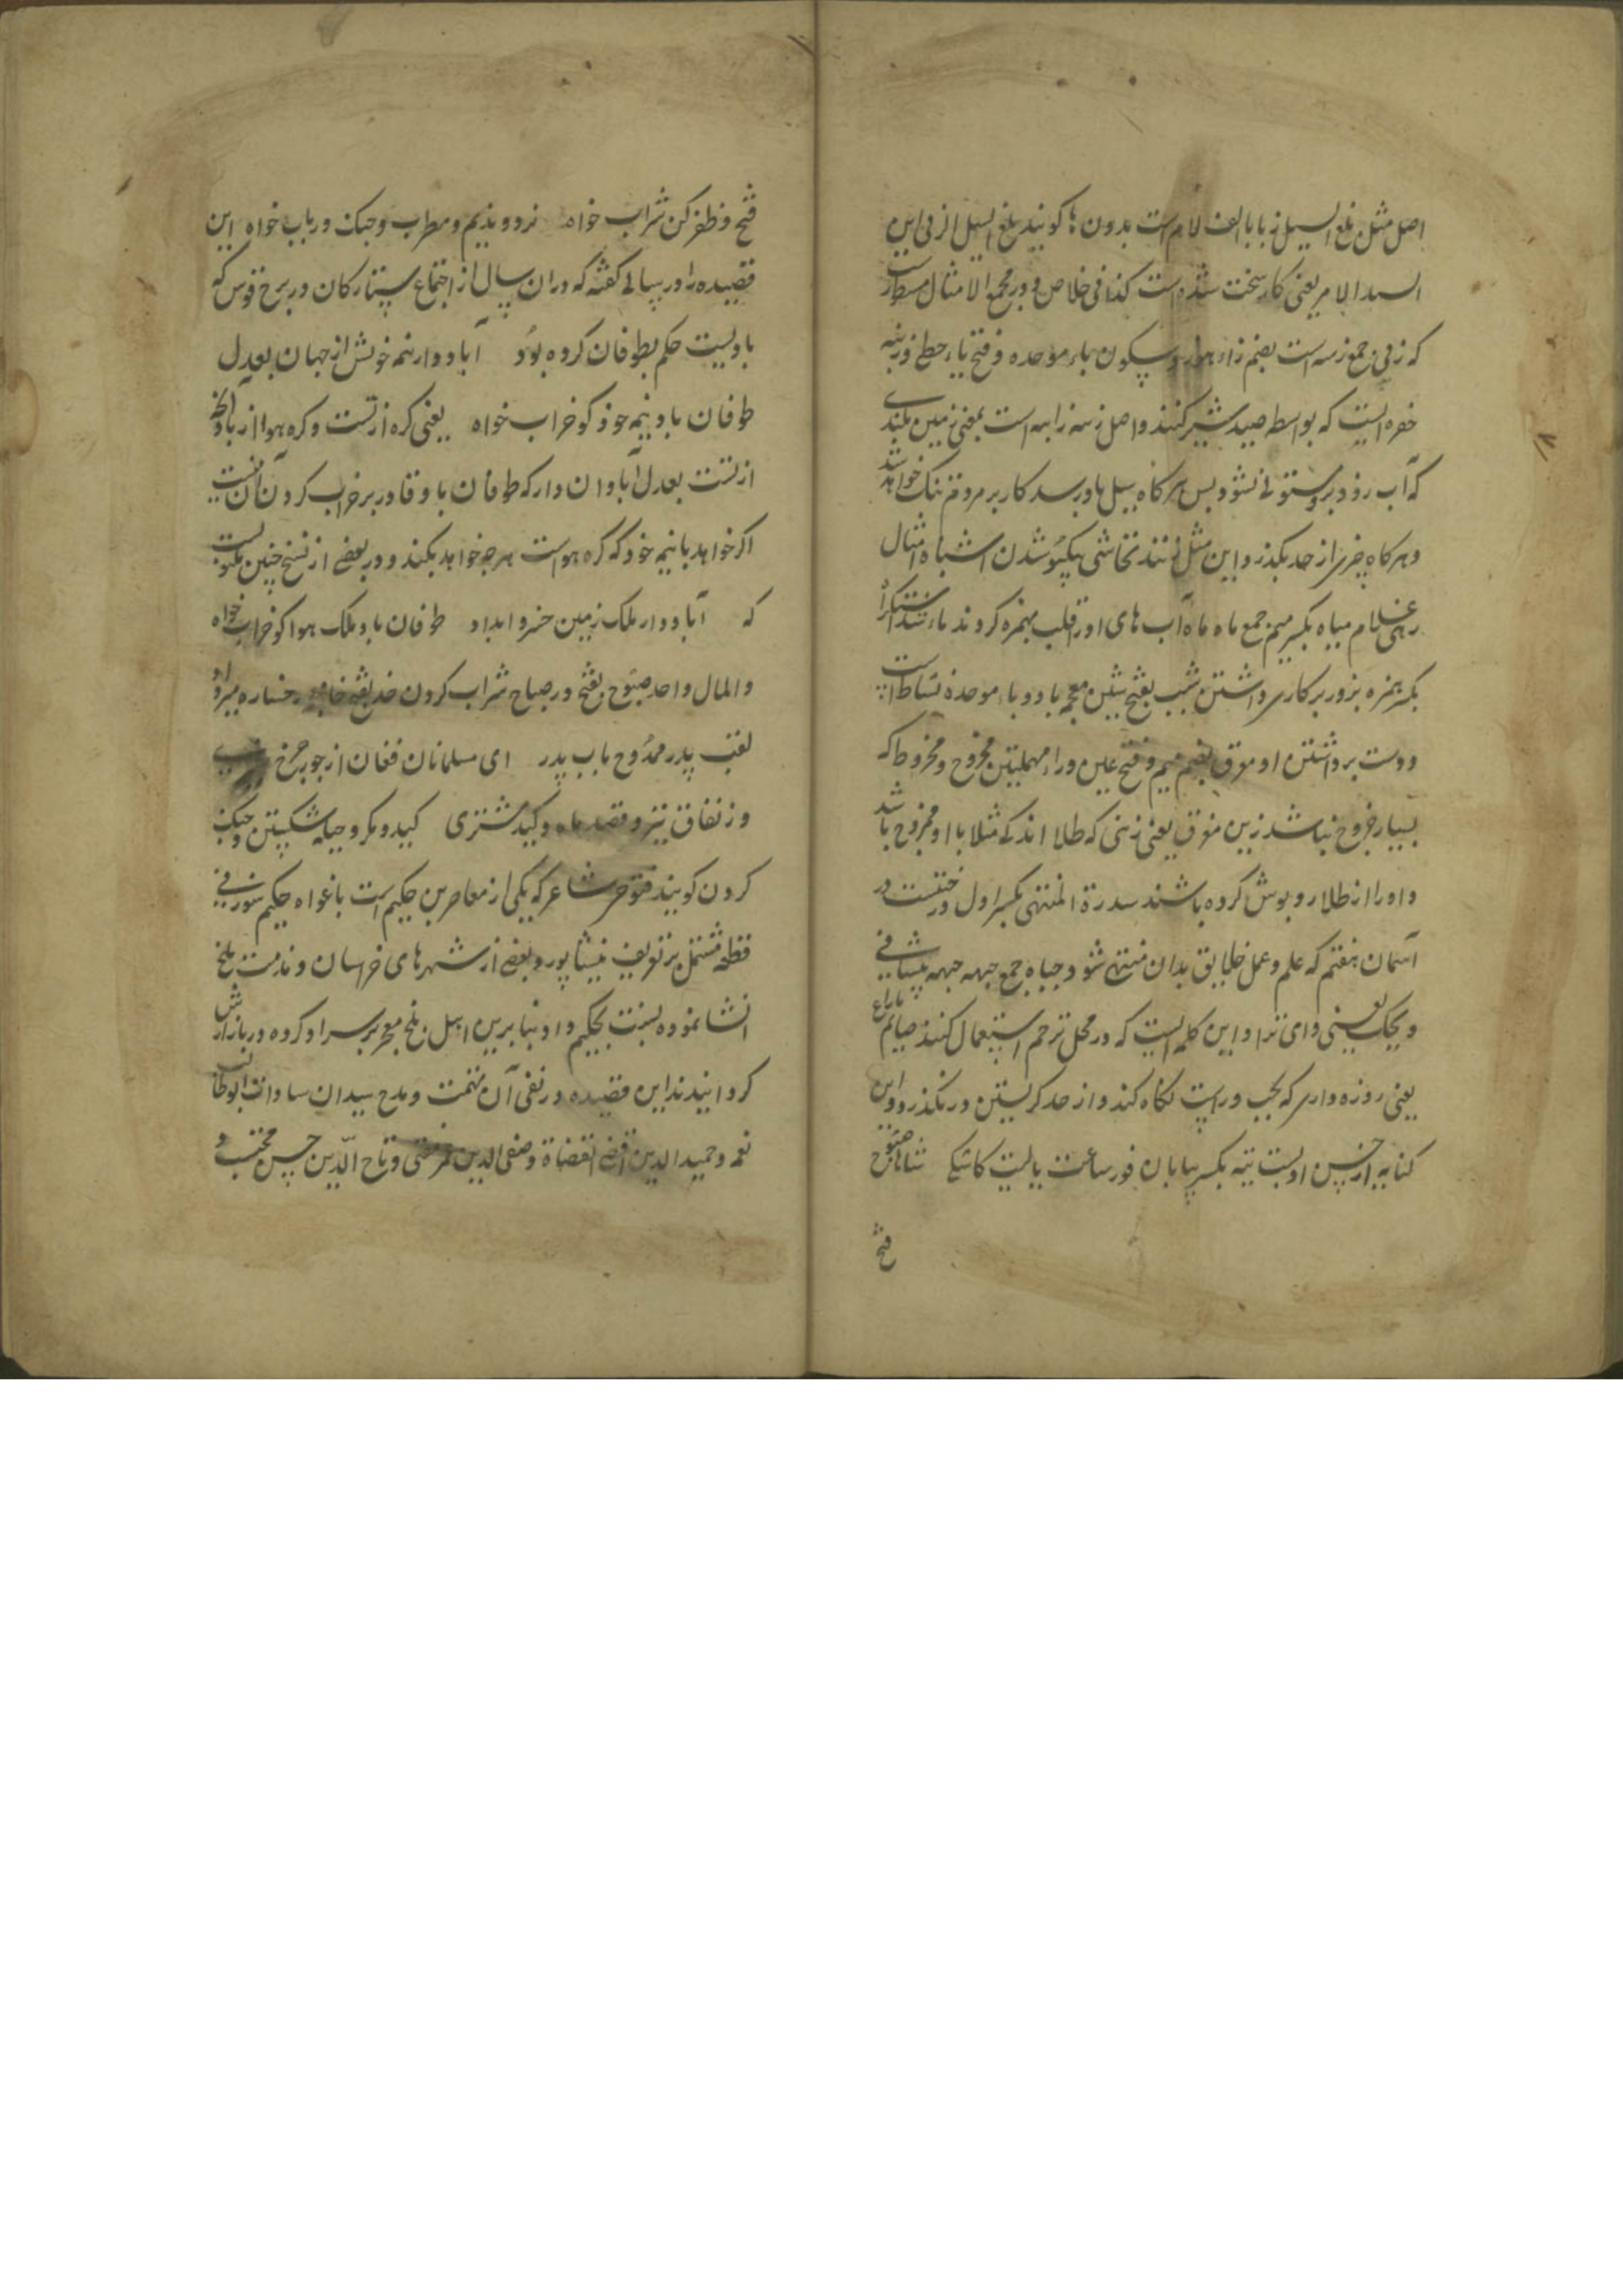 اصل مثل بلغ السیل زبا بالف لام است بدون ها کویند بلغ السیل الزبی این
الامر یعنی کار سخت شده است کذا فی خلاص و در مجمع الامثال مسطور است
که زبی جمع زبیه است بضم زاء هوز و سکون باء موحده و فتح یاء حطی و زبیه
حفره ایست که بواسطه صید شیر کنند و اصل زبیه رابیه است بمعنی زمین بلندی
که آب رود بر و مستولی نشود پس هرکاه سیل باو رسد کار بر مردم تنک خواهد شد
و هرکاه چیزی از حد بکذرد این مثل زنند تحاشی یکسو شدن اشباه امثال
رهی غلام میاه بکسر میم جمع ماه ماه آب های او را قلب بهمزه کردند ماء شد اکراه
بکسر همزه بزور بر کاری داشتن شیب بفتح شین معجمه با دو باء موحده نشاط اسپ
و دست برداشتن او معرق بضم میم و فتح عین و راء مهملتین مخروج و مخروط که
بسیار خروج نباشد زین معرق یعنی زینی که طلا اندکی مثلا با او مخروج باشد
و او را از طلا روپوش کرده باشند سدرة المنتهی بکسر اول درختیست در
آسمان هفتم که علم و عمل خلایق بدان منتهی شود جباه جمع جبهه جبهه پیشانی
ویحک یعنی وای ترا و این کلمه ایست که در محل ترحم استعمال کنند صایم
یعنی روزه داری که بچپ و راست نکاه کند و از حد کریستن در نکذرد و این
کنایه از خس اوست تیه بکسر بیابان فور ساعت یالیت کاشکی شاها صبوح
فتح
فتح و ظفر کن شراب خواه نرد و ندیم و مطرب و چنک و رباب خواه این
قصیده را در سالی کفته که در ان سال از اجتماع ستارکان در برج قوس که
بادیست حکم بطوفان کرده بود آباد دار نیمه خویش از جهان بعدل
طوفان باد نیمه خود کو خراب خواه یعنی کره ارتست و کره هوا از باد آنچه
از تست بعدل آبادان دار که طوفان باد قادر بر خراب کردن آن نیست
اکر خواهد با نیمه خود که کره هواست هرچه خواهد بکند و در بعضی از نسخ چنین مکتوبست
که آباد دار ملک زمین خسروا بداد طوفان باد ملک هوا کو خراب خواه
والمال واحد صبوح بفتح در صباح شراب کردن خد بفتح خا معجمه رخساره
لقب پدر ممدوح باب پدر ای مسلمانان فغان از جور چرخ چنبری
وز نفاق تیر و قصد ماه و کید مشتری کید و مکر و حیله شکستن و جنک
کردن کویند فتوحی شاعر که یکی از معاصرین حکیم است باغواء حکیم سوزنی
قطعه مشتمل بر تعریف نیشاپور و بعضی از شهرهای خراسان و مذمت بلخ
انشا نموده نسبت بحکیم داد بنابرین اهل بلخ معجر بر سر او کرده در بازارش
کردانیدند این قصیده در نفی آن تهمت و مدح سیدان سادات ابوطالب
نعمه و حمید الدین اقضی القضاة و صفی الدین عمر مفتی و تاج الدین حسن محتسب و